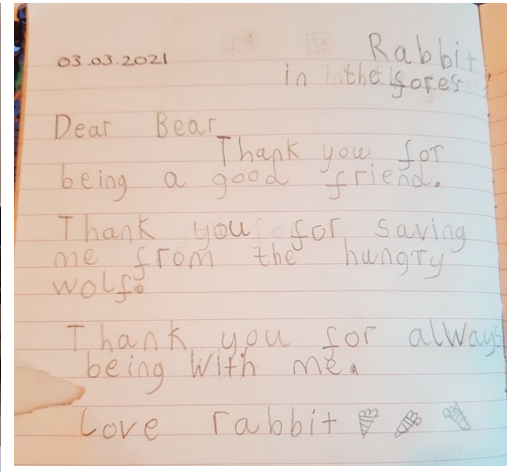 03.03.2021
Rabbit
in the fores
Dear Bear
Thank you for
being a good friend.
Thank you for saving
me from the hungry
wolf.
Thank you for always
being with me.
Love rabbit